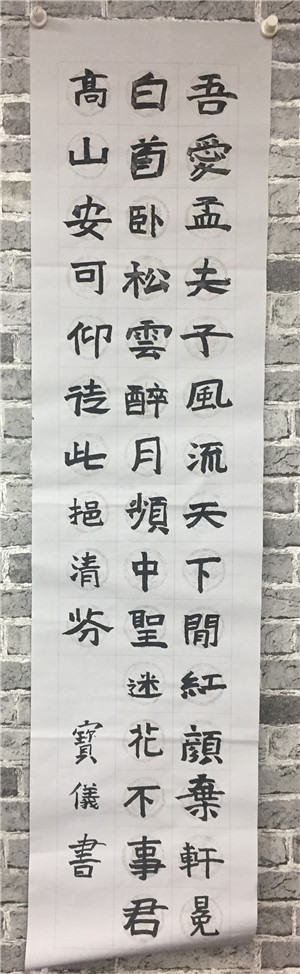 吾愛孟夫子風流天下聞紅顔棄軒冕
白首卧松雲醉月頻中聖迷花不事君
髙山安可仰徒此挹清芬 寶儀書